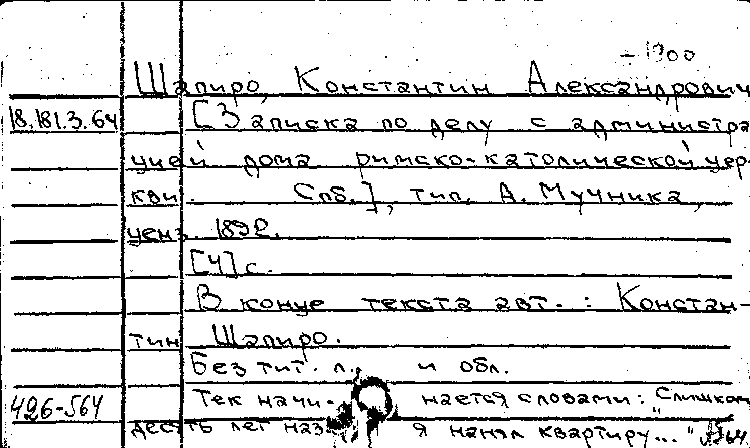 – 1900
Шапиро, Константин Александрович
18.181.3.64 [Записка по делу с администра
цией дома римско-католической цер
кви. Спб.], тип. А. Мучника,
ценз. 1892.
[4] с.
В конце текста авт.: Констан-
тин Шапиро.
Без тит. л. и обл.
496-564 Тек начи- нается словами: "Слишком
десять лет наз я нанял квартиру..."